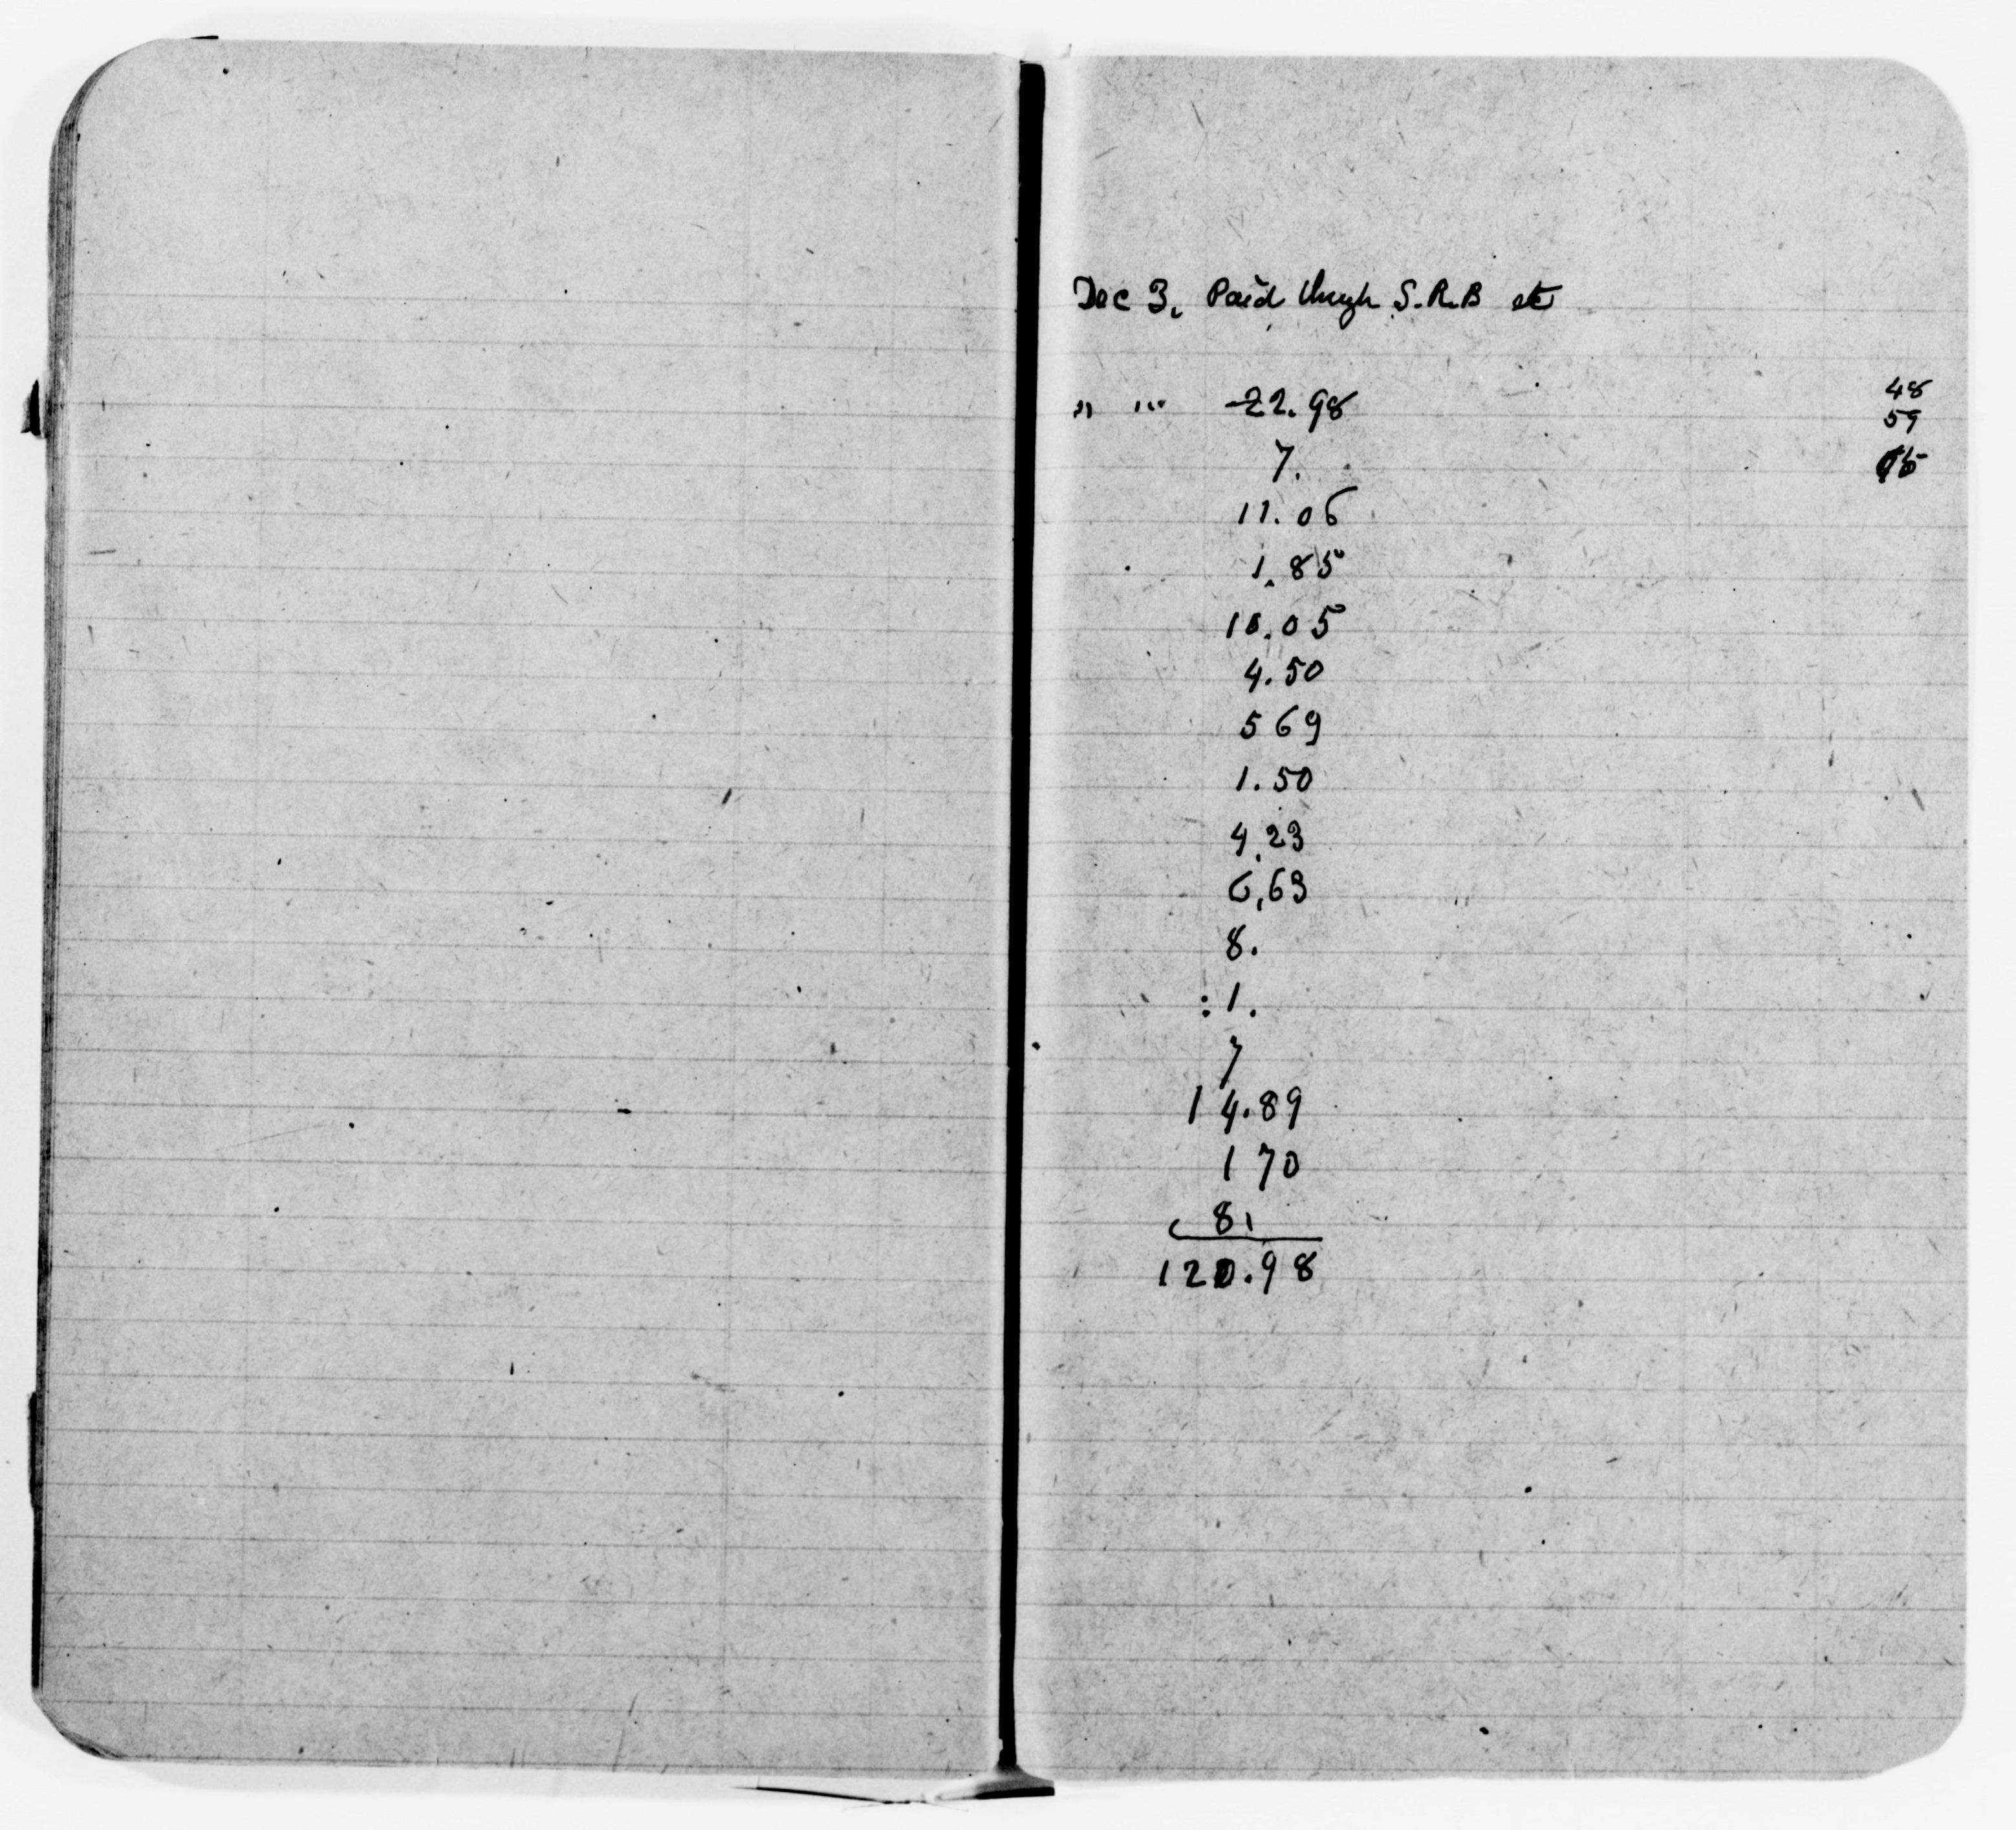 Dec 3, Paid through S.R.B etc
" " 22.98 48
59
7.
11.06
1.85
10.05
4.50
5 69
1.50
4.23
6,63
8.
1.
7
14.89
1 70
8.
120.98